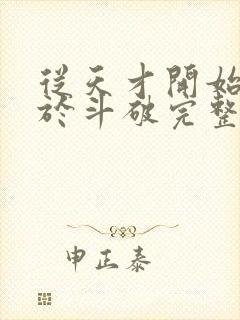 從天才開始
於斗破完整
申正泰